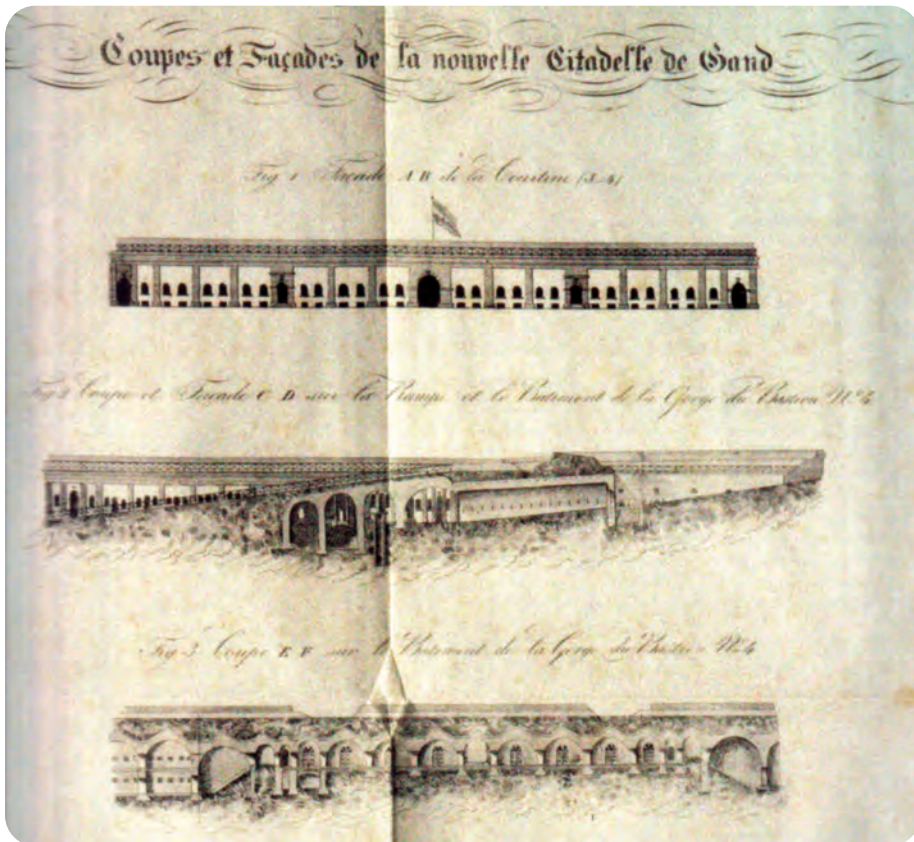 Coupes et Façades de la nouvelle Citadelle de Gand
Fig 1 Façade A B de la Courtine (3-4)
Fig 2 Coupe et Façade C D sur la Rampe et le Batiment de la Gorge du Bastion N.º 4
Fig 3 Coupe E F sur le Batiment de la Gorge du Bastion N.º 4